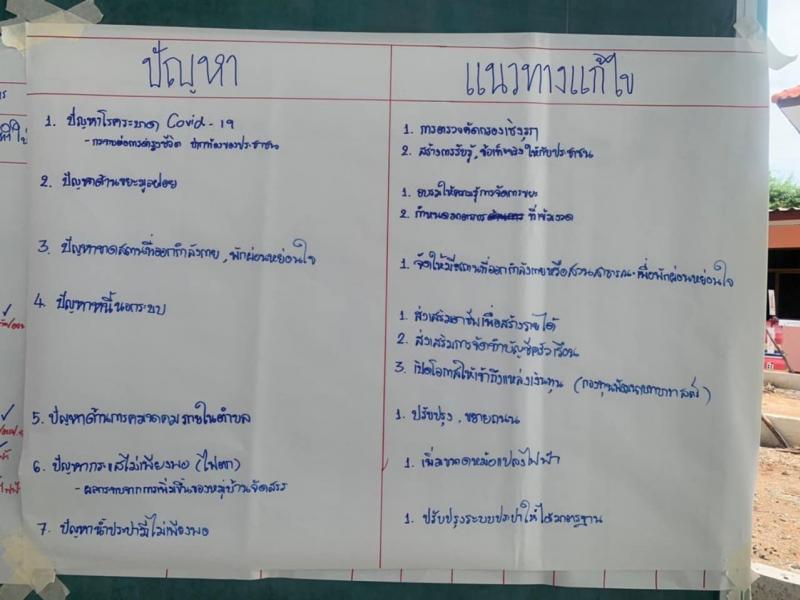 ปัญหา
แนวทางแก้ไข
1. ปัญหาโรคระบาด Covid-19
- กระทบต่อการดำรงชีวิต ปากท้องของประชาชน
1. การตรวจคัดกรองเชิงรุก
2. สร้างการรับรู้, ข้อเท็จจริง ให้กับประชาชน
2. ปัญหาด้านขยะมูลฝอย
1. อบรมให้ความรู้การจัดการขยะ
2. กำหนดมาตรการ ที่เข้มงวด
3. ปัญหาขาดสถานที่ออกกำลังกาย, พักผ่อนหย่อนใจ
1. จัดให้มีสถานที่ออกกำลังกายหรือสวนสาธารณะเพื่อพักผ่อนหย่อนใจ
4. ปัญหาหนี้นอกระบบ
1. ส่งเสริมอาชีพเพื่อสร้างรายได้
2. ส่งเสริมการจัดทำบัญชีครัวเรือน
3. เปิดโอกาสให้เข้าถึงแหล่งเงินทุน (กองทุนพัฒนาบทบาทสตรี)
5. ปัญหาด้านการคมนาคมภายในตำบล
1. ปรับปรุง, ขยายถนน
6. ปัญหากระแสไม่เพียงพอ (ไฟตก)
- ผลกระทบจากการเพิ่มขึ้นของหมู่บ้านจัดสรร
1. เพิ่มขนาดหม้อแปลงไฟฟ้า
7. ปัญหาน้ำประปามีไม่เพียงพอ
1. ปรับปรุงระบบประปาให้ได้มาตรฐาน